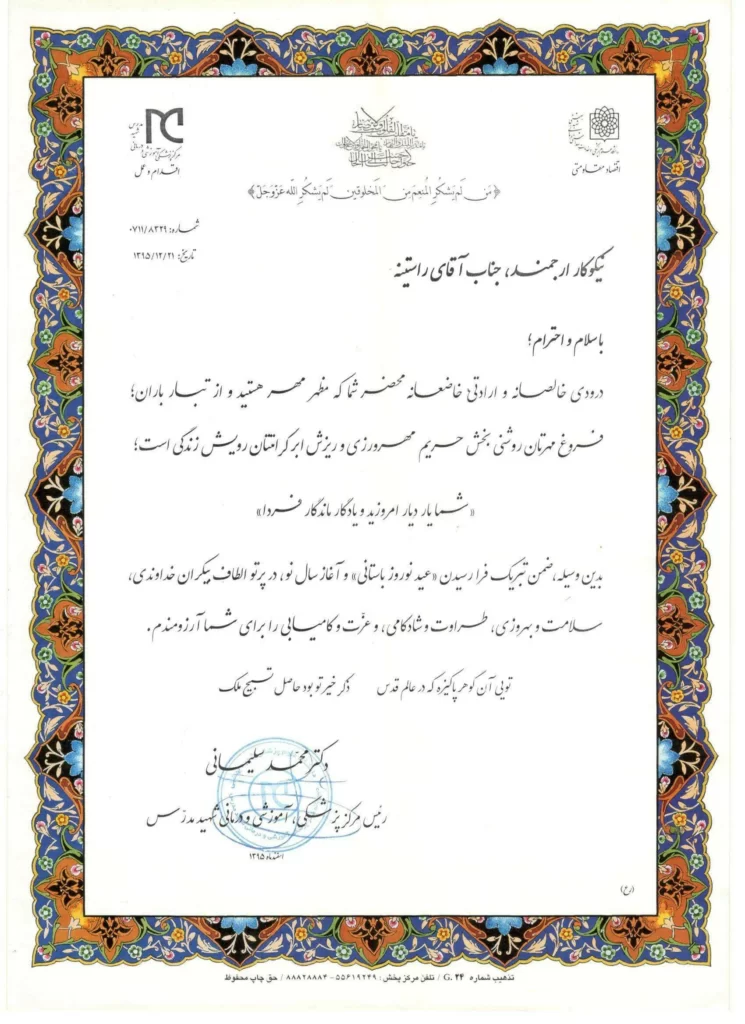 اقتصاد مقاومتی
مرکز پزشکی، آموزشی و درمانی
اقدام و عمل
﴿مَن لَم یَشکُرِ المُنعِمَ مِنَ المَخلوقینَ لَم یَشکُرِ اللهَ عَزَّوَجَلَّ﴾
شماره: ۰۷۱۱/۸۳۲۹
تاریخ: ۱۳۹۵/۱۲/۲۱
نیکوکار ارجمند، جناب آقای راستینه
با سلام و احترام؛
درودی خالصانه و ارادتی خاضعانه محضر شما که مظهر مهر هستید و از تبار باران؛
فروغ مهرتان روشنی بخش حریم مهرورزی و ریزش ابر کرامتتان رویش زندگی است؛
«شما یار دیار امروزید و یادگار ماندگار فردا»
بدین وسیله، ضمن تبریک فرا رسیدن «عید نوروز باستانی» و آغاز سال نو، در پرتو الطاف بیکران خداوندی،
سلامت و بهروزی، طراوت و شادکامی، و عزّت و کامیابی را برای شما آرزومندم.
تویی آن گوهر پاکیزه که در عالم قدس ذکر خیر تو بود حاصل تسبیح ملک
دکتر محمّد سلیمانی
رئیس مرکز پزشکی، آموزشی و درمانی شهید مدرّس
اسفند ماه ۱۳۹۵
(رح)
تذهیب شماره G. ۲۴ / تلفن مرکز پخش: ۵۵۶۱۹۲۴۹ - ۸۸۸۲۸۸۸۴ / حق چاپ محفوظ